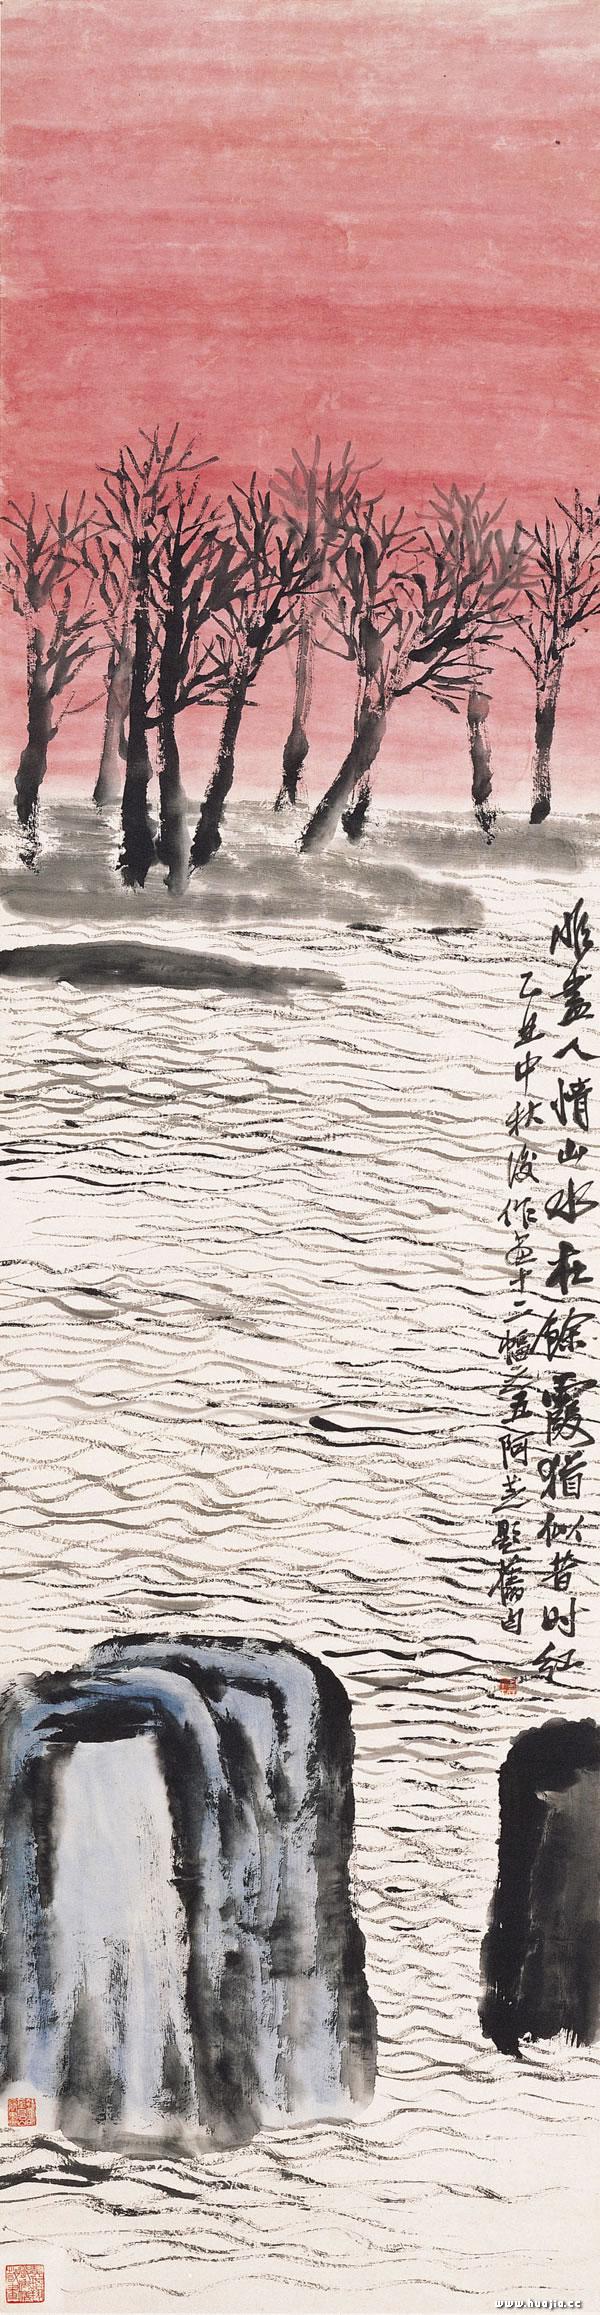 盡人情山水在餘霞猶似昔時紅
乙丑中秋後作畫十二幅之五阿芝題舊句
www.huajia.cc